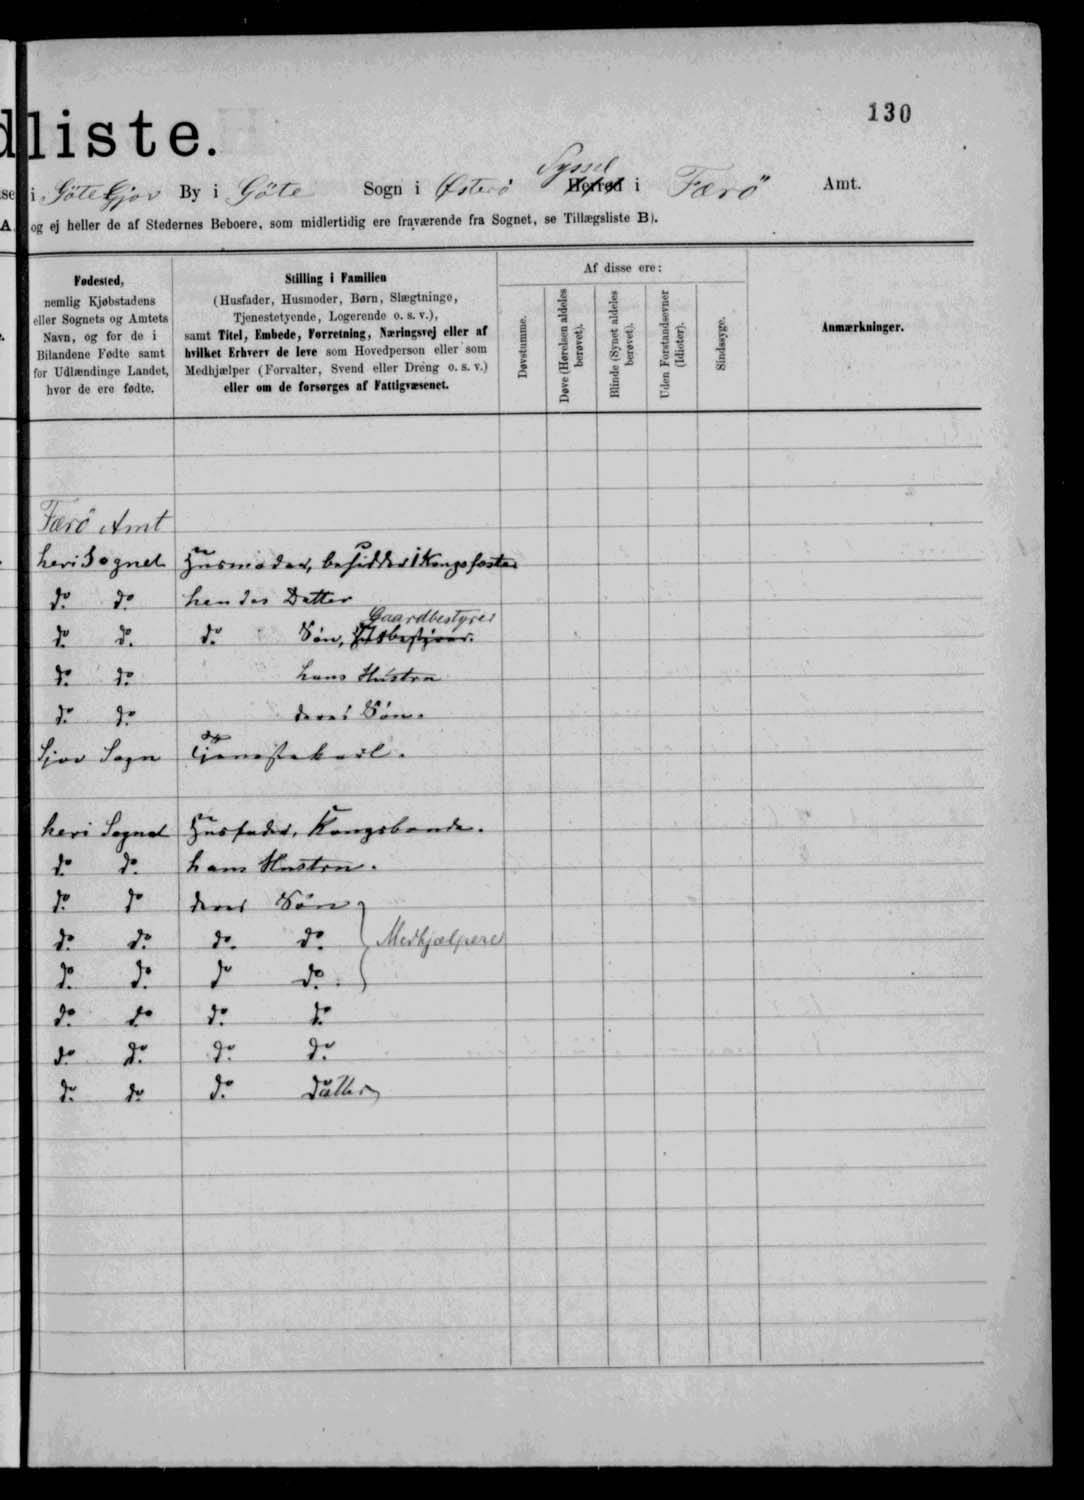 130
dliste.
Syssel
i Göte Gjov By i Göte Sogn i Österö Herred i Færö Amt.
A. og ej heller de af Stedernes Beboere, som midlertidig ere fraværende fra Sognet, se Tillægsliste B).
Fødested,
nemlig Kjøbstadens
eller Sognets og Amtets
Navn, og for de i
Bilandene Fødte samt
for Udlændinge Landet,
hvor de ere fødte.
Stilling i Familien
(Husfader, Husmoder, Børn, Slægtninge,
Tjenestetyende, Logerende o. s. v.),
samt Titel, Embede, Forretning, Næringsvej eller af
hvilket Erhverv de leve som Hovedperson eller som
Medhjælper (Forvalter, Svend eller Dreng o. s. v.)
eller om de forsørges af Fattigvæsenet.
Af disse ere:
Døvstumme.
Døve (Hørelsen aldeles
berøvet).
Blinde (Synet aldeles
berøvet).
Uden Forstandsevner
(Idioter).
Sindssyge.
Anmærkninger.
Færö Amt
heri Sognet Husmoder, besidder Kongsfæste
do. do. hendes Datter
Gaardbestyrer
do. do. do. Søn,
do. do. hans Hustru
do. do. deres Søn.
Gjov Sogn Tjenestekarl.
heri Sognet Husfader, Kongsbonde.
do. do. hans Hustru.
do. do deres Søn
do. do. do. do. Medhjælpere
do. do. do do.
do. do. do. do.
do. do. do. do.
do. do. do. Datter